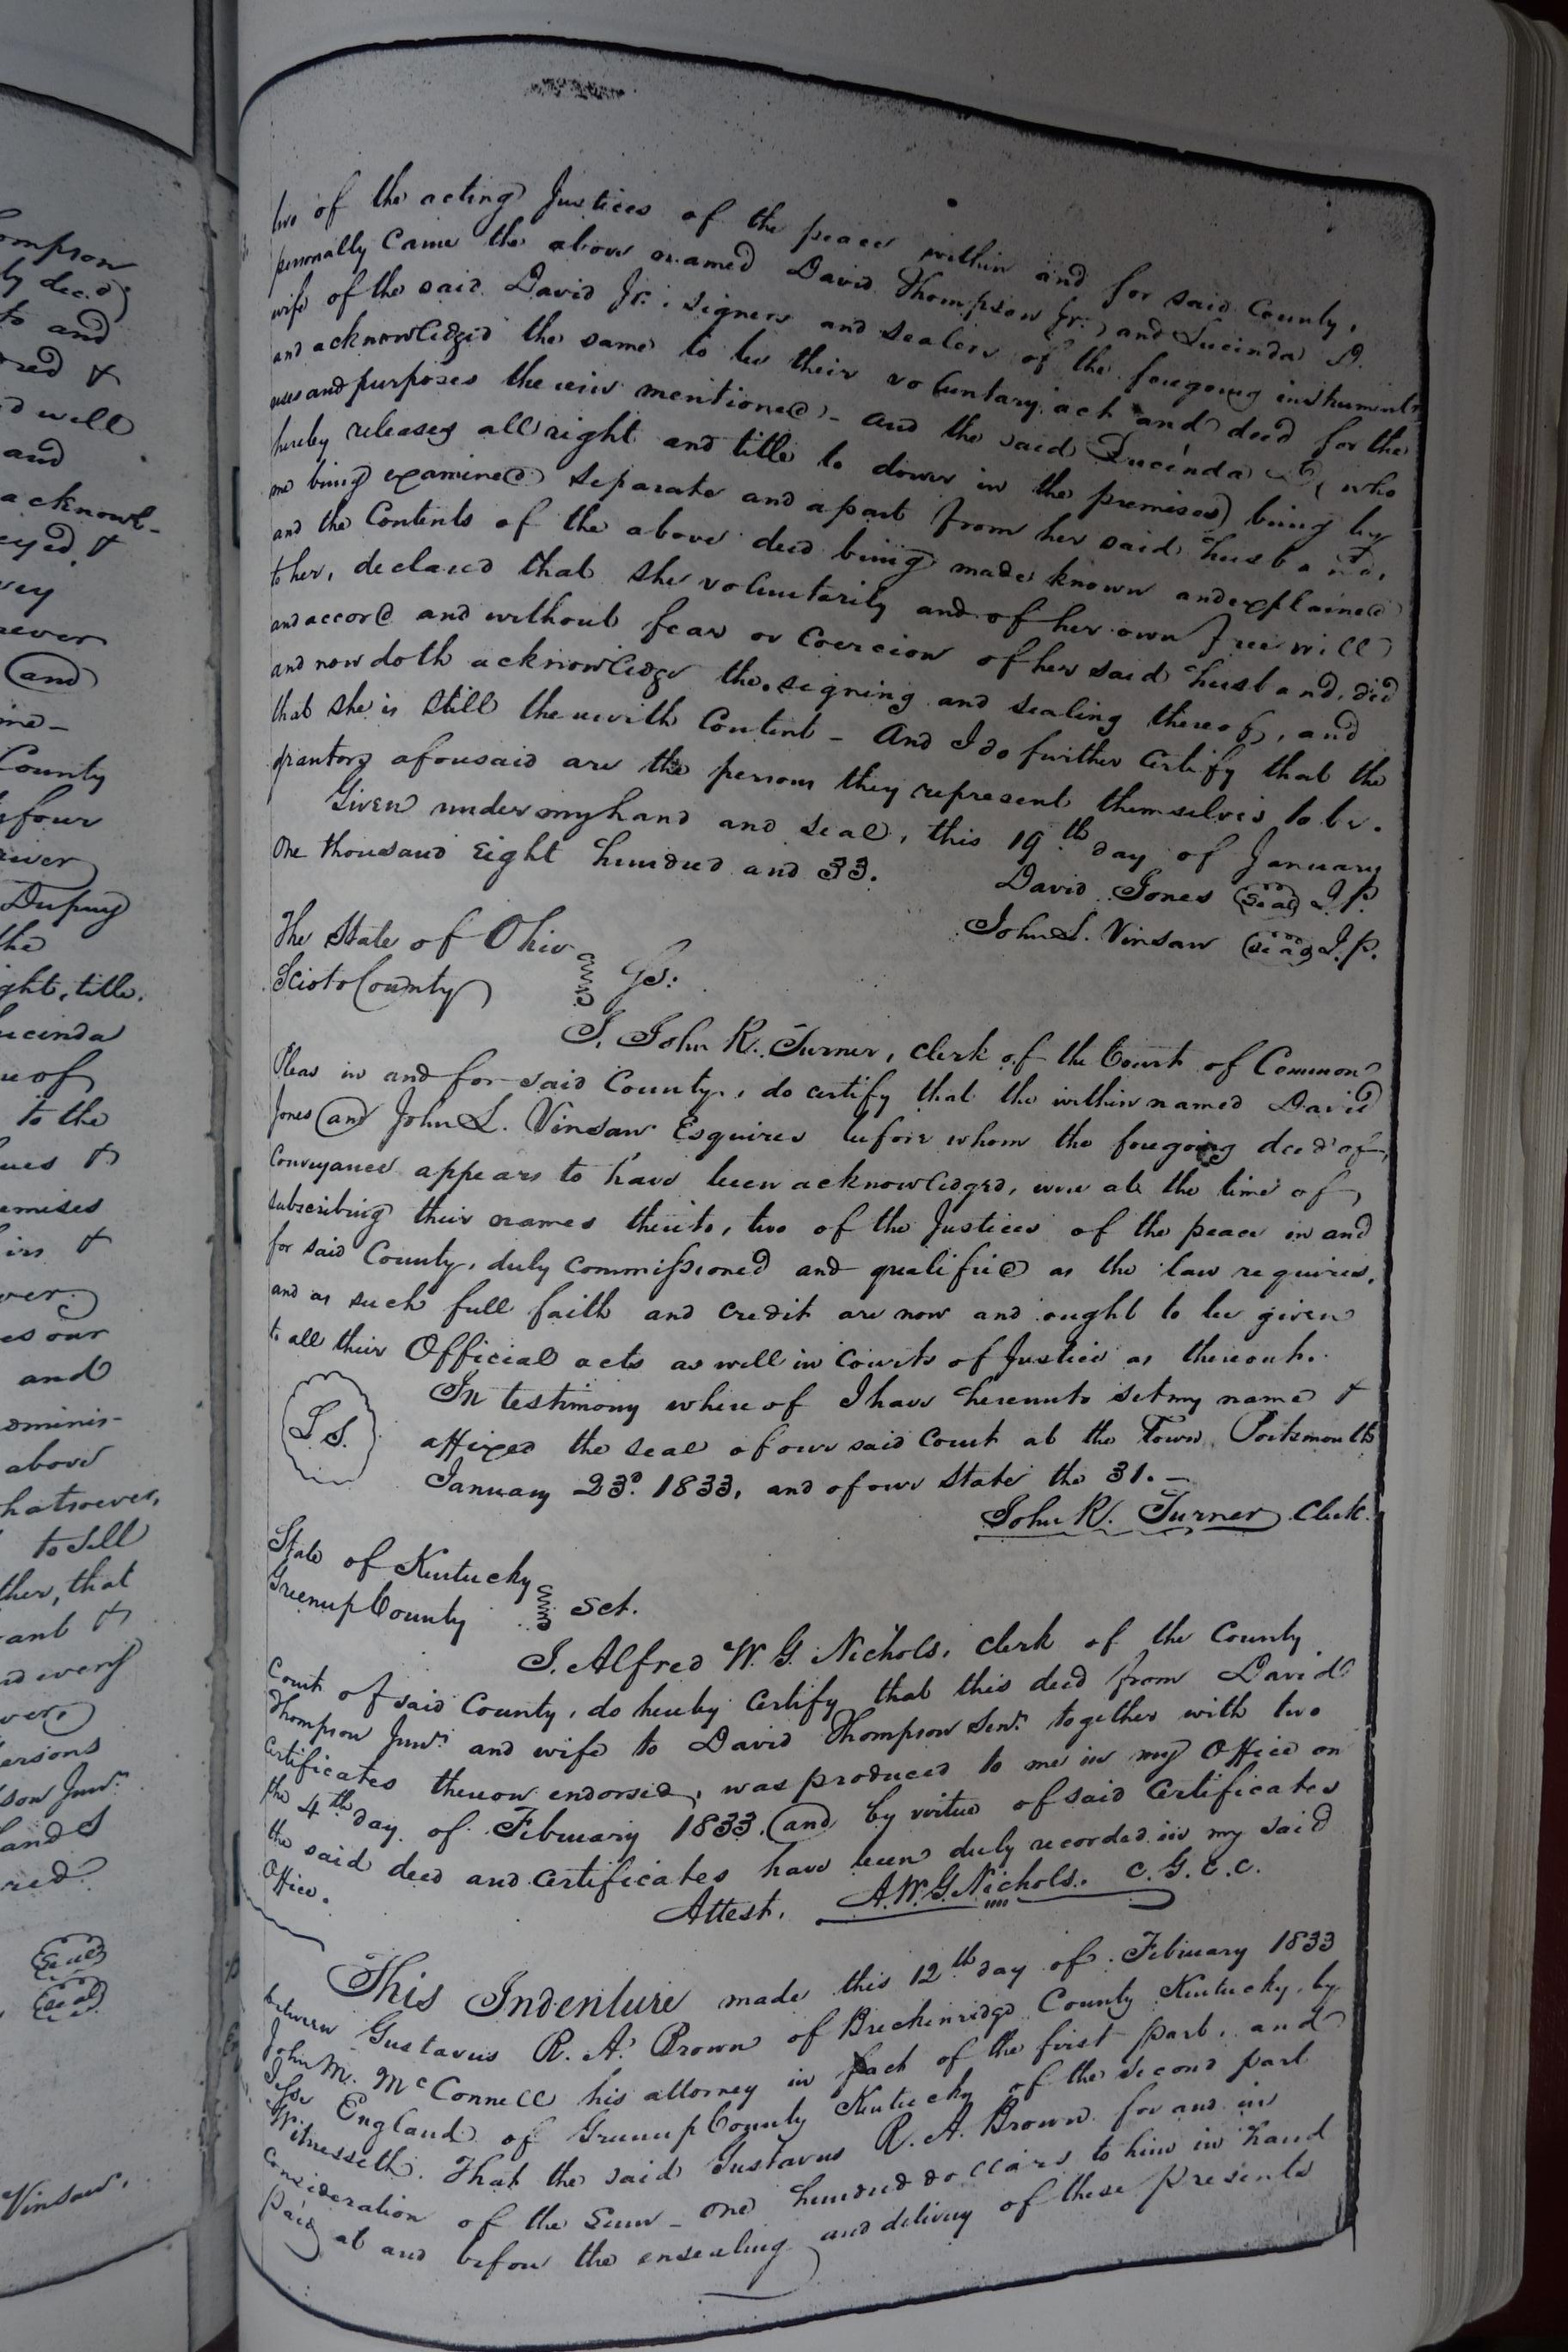 ompson
ly dec.d)
to and
ored &
d well
and
acknowl-
eyed, &
vey
never
and
me-
County
four
river
Dupuy
the
ight, title.
ucinda
ue of
to the
ues &
emises
irs &
ver.
es our
and
adminis-
above
hatsoever,
to sell
ther, that
ant &
d every
ver,
ersons
son Junr.
hands
red
Seal
Seal
Vinsaw.
two of the acting Justices of the peace within and for said County,
personally came the above named David Thompson Jr. and Lucinda D.
wife of the said David Jr. signers and sealers of the foregoing instrument
and acknowledged the same to be their voluntary act and deed for the
uses and purposes therein mentioned - and the said Lucinda D, (who
hereby releases all right and title to dower in the premises) being by
me being examined separate and apart from her said husband,
and the Contents of the above deed being made known and explained
to her, declared that she voluntarily and of her own free will
and accord and without fear or coercion of her said husband, did
and now doth acknowledge the signing and sealing thereof, and
that she is still therewith Content - And I do further certify that the
grantors aforesaid are the persons they represent themselves to be.
Given under my hand and seal, this 19th day of January
One thousand Eight hundred and 33.
David Jones (Seal) J.P.
John L. Vinsaw (Seal) J.P.
The State of Ohio
Scioto County
I, John R. Turner, clerk of the Court of Common
Pleas in and for said County, do certify that the within named David
Jones and John L. Vinsaw Esquires before whom the foregoing deed of
Conveyance appears to have been acknowledged, were at the time of
subscribing their names thereto, two of the Justices of the peace in and
for said County, duly commissioned and qualified as the law requires,
and as such full faith and credit are now and ought to be given
to all their Official acts as well in courts of Justice as thereout.
In testimony whereof I have hereunto set my name &
affixed the seal of our said Court at the Town Portsmouth
L S.
January 23d. 1833, and of our State the 31. -
John R. Turner Clerk.
State of Kentucky
Greenup County
Sct.
I, Alfred W. G. Nichols, clerk of the County
Court of said County, do hereby certify that this deed from David
Thompson Junr. and wife to David Thompson Senr. together with two
certificates thereon endorsed, was produced to me in my Office on
the 4th day of February 1833. and by virtue of said certificates
the said deed and certificates have been duly recorded in my said
Office.
Attest, A. W. G. Nichols. C. G. C. C.
This Indenture made this 12th day of February 1833
between Gustavus R. A. Brown of Breckinridge County Kentucky, by
John M. McConnell his attorney in fact of the first part, and
Jesse England of Greenup County Kentucky of the second part
Witnesseth. That the said Gustavus R. A. Brown for and in
Consideration of the Sum - One hundred dollars to him in hand
Paid at and before the ensealing and delivery of these presents